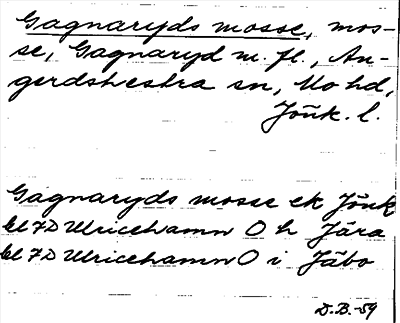 Gagnaryds mosse, mos-
se, Gagnaryd m. fl., An-
gerdshestra sn, Mo hd,
Jönk. l.
Gagnaryds mosse ek Jönk
bl 7D Ulricehamn O h Jära
bl 7D Ulricehamn O i Jäbo
D.B.-59